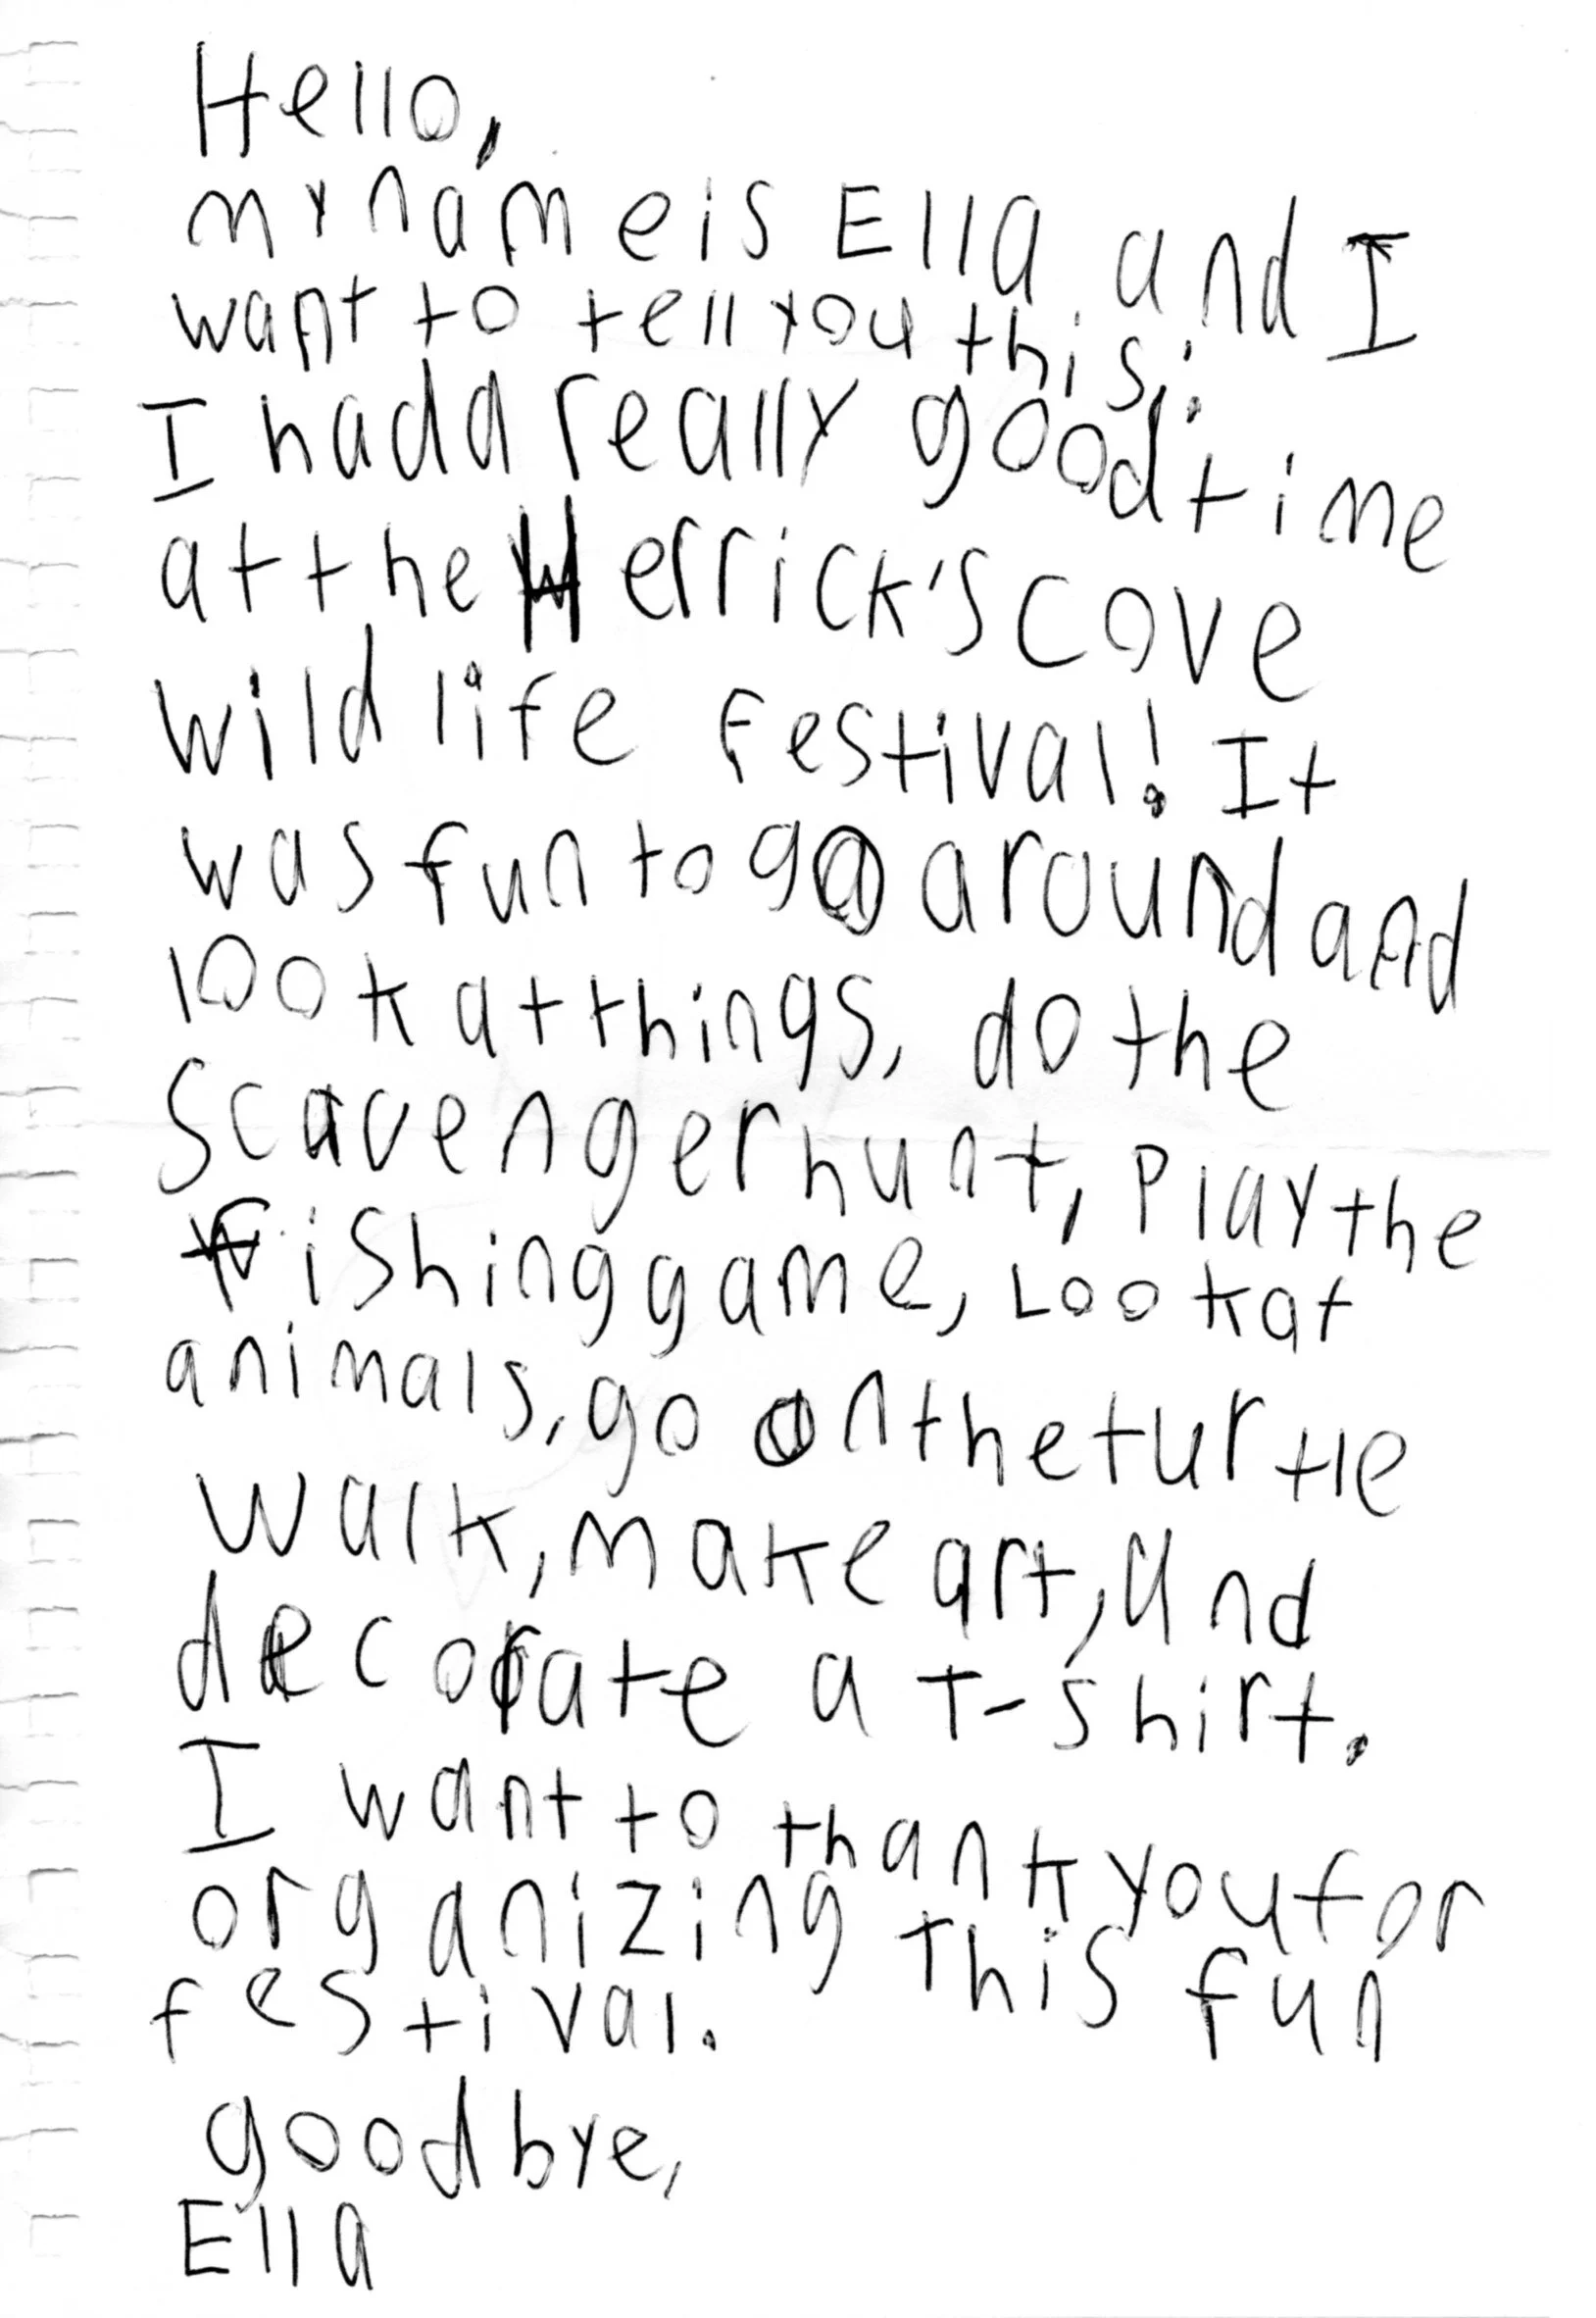 Hello,
my name is Ella and I
want to tell you this:
I had a really good time
at the Herrick's cove
wild life Festival! It
was fun to go around and
look at things, do the
Scavenger hunt, play the
Fishing game, Look at
animals, go on the turtle
walk, make art, and
decorate a T-shirt.
I want to thank you for
organizing This fun
festival.
good bye,
Ella